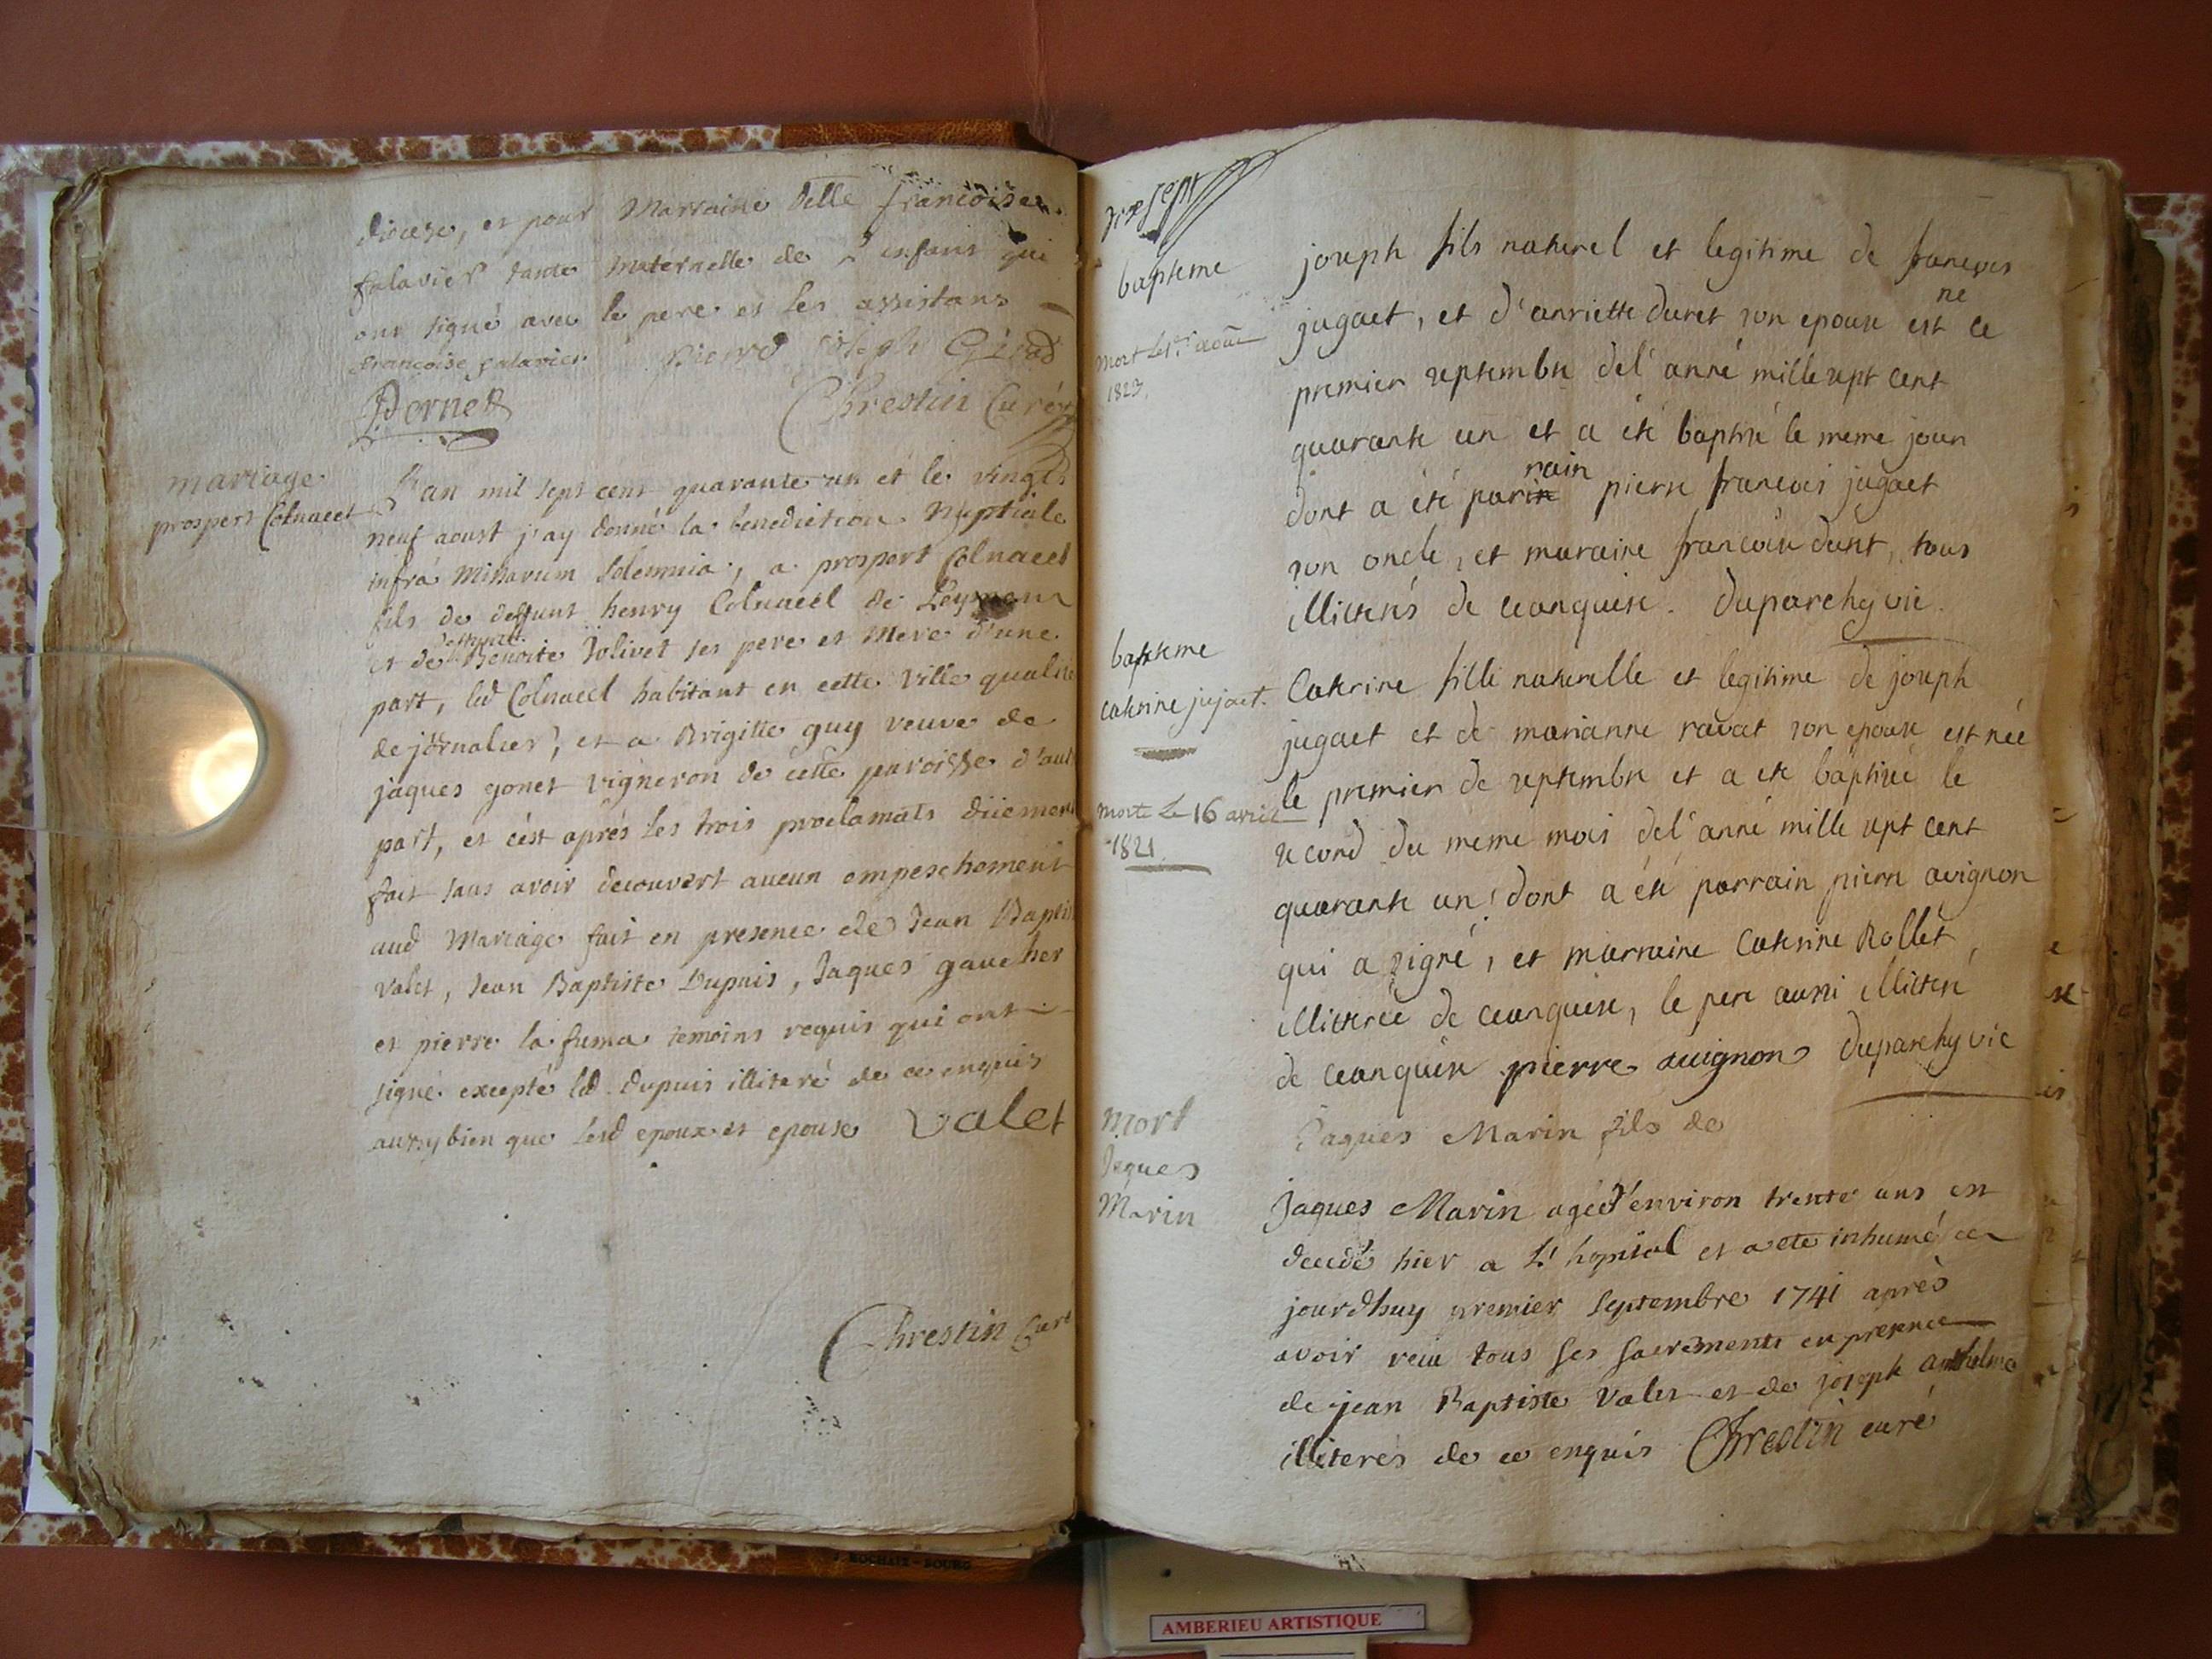 diocese, et pour Marraine delle francoise
falavier tante maternelle de L'enfant qui
ont signé avec le pere et les assistans
francoise falavier pierre joseph
Dornet
Chrestin Curé
mariage
prospert Colnacel
L'an mil sept cent quarante un et le vingt
neuf aoust j'ay donné la benediction Nuptiale
infrà Missarum Solemnia, a prospert Colnacel
fils de deffunt henry Colnacel de Leyment
deffunte
et de Benoite Jolivet ses pere et Mere d'une
part, led Colnacel habitant en cette Ville qualité
de jornalier, et a Brigitte guy veuve de
jaques gonet vigneron de cette paroisse d'aut
part, et c'est aprés les trois proclamats düement
fait sans avoir decouvert aucun empeschement
aud Mariage fait en presence de Jean Baptis
valet, Jean Baptiste Dupuis, Jaques gaucher
et pierre la fuma temoins requis qui ont
signé excepté led. Dupuis illiteré de ce enquis
aussy bien que lesd epoux et epouse Valet
Chrestin Curé
bapteme
mort le 1er aout
1823
joseph fils naturel et legitime de francois
jugaet, et d'anriette duret son epouse est ce
ne
premier septembre del'anné mille sept cent
quarante un et a été baptisé le meme jour
dont a été parin pierre francois jugaet
rain
son oncle, et maraine francoise duret, tous
illiterés de ceanquise. Duparchy vic.
bapteme
caterine jujaet.
morte le 16 avril
1821
Caterine fille naturelle et legitime de joseph
jugaet et de marianne ravat son epouse est née
le premier de septembre et a ete baptisée le
second du meme mois del'anné mille sept cent
quarante un dont a été parrain pierre avignon
qui a signé, et marraine Caterine Rollet
illiterée de ceanquise, le pere aussi illiteré
de ceanquise pierre avignon Duparchy vic
Mort
Jaques
Marin
Jaques Marin fils de
Jaques Marin agé d'environ trente ans est
decedé hier a L'hopital et a ete inhumé ce
jourdhuy premier Septembre 1741 après
avoir recu tous ses sacrements en presence
de jean Baptiste Valet et de joseph anthelme
illiterés de ce enquis Chrestin curé
J. ROCHAIX - BOURG
AMBERIEU ARTISTIQUE